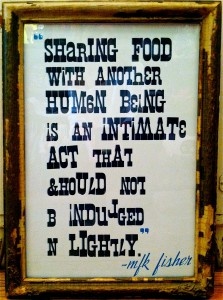 "SHaRING FOOD
WiTH ANOTHER
HUMeN BeiNG
iS AN iNTiMATe
ACT THAT
SHOULD NOT
B iNDULgED
N LiGHTLY."
-mfk fisher